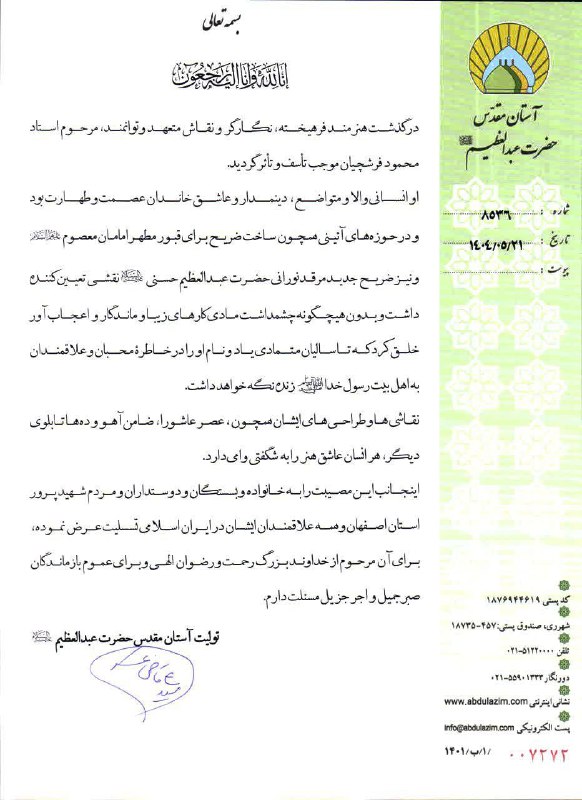 بسمه تعالی
انا لله و انا الیه راجعون
درگذشت هنرمند فرهیخته، نگارگر و نقاش متعهد و توانمند، مرحوم استاد
محمود فرشچیان موجب تأسف و تأثر گردید.
او انسانی والا و متواضع، دینمدار و عاشق خاندان عصمت و طهارت بود
و در حوزه‌های آئینی همچون ساخت ضریح برای قبور مطهر امامان معصوم علیهم‌السلام
و نیز ضریح جدید مرقد نورانی حضرت عبدالعظیم حسنی علیه‌السلام نقشی تعیین کننده
داشت و بدون هیچگونه چشمداشت مادی کارهای زیبا و ماندگار و اعجاب آور
خلق کرد که تا سالیان متمادی یاد و نام او را در خاطرهٔ محبان و علاقمندان
به اهل بیت رسول خدا ﷺ زنده نگه خواهد داشت.
نقاشی‌ها و طراحی‌های ایشان همچون، عصر عاشورا، ضامن آهو و ده‌ها تابلوی
دیگر، هر انسان عاشق هنر را به شگفتی وامی‌دارد.
اینجانب این مصیبت را به خانواده و بستگان و دوستداران و مردم شهیدپرور
استان اصفهان و همه علاقمندان ایشان در ایران اسلامی تسلیت عرض نموده،
برای آن مرحوم از خداوند بزرگ رحمت و رضوان الهی و برای عموم بازماندگان
صبر جمیل و اجر جزیل مسئلت دارم.
تولیت آستان مقدس حضرت عبدالعظیم علیه‌السلام
آستان مقدس
حضرت عبدالعظیم علیه‌السلام
شماره : ۸۵۳۶
تاریخ : ۱۴۰۴/۰۵/۲۱
پیوست :
کد پستی ۱۸۷۶۹۴۴۶۱۹
شهرری، صندوق پستی: ۴۵۷-۱۸۷۳۵
تلفن ۵۱۲۲۰۰۰۰-۰۲۱
دورنگار ۵۵۹۰۱۳۳۳-۰۲۱
نشانی اینترنتی www.abdulazim.com
پست الکترونیکی info@abdulazim.com
۱/ب/۱۴۰۱ ۰۰۷۲۷۲